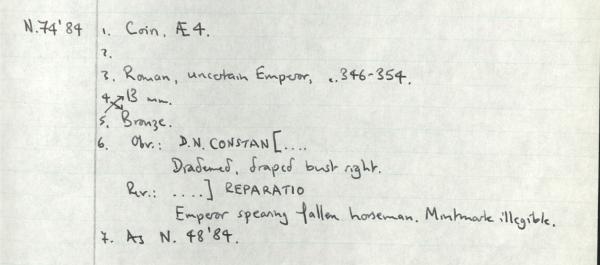 N.74'84 1. Coin, Æ 4.
2.
3. Roman, uncertain Emperor, c.346-354.
4. 13 mm.
5. Bronze.
6. Obv.: D.N. CONSTAN[....
Diademed, draped bust right.
Rev.: ....] REPARATIO
Emperor spearing fallen horseman. Mintmark illegible.
7. As N. 48'84.